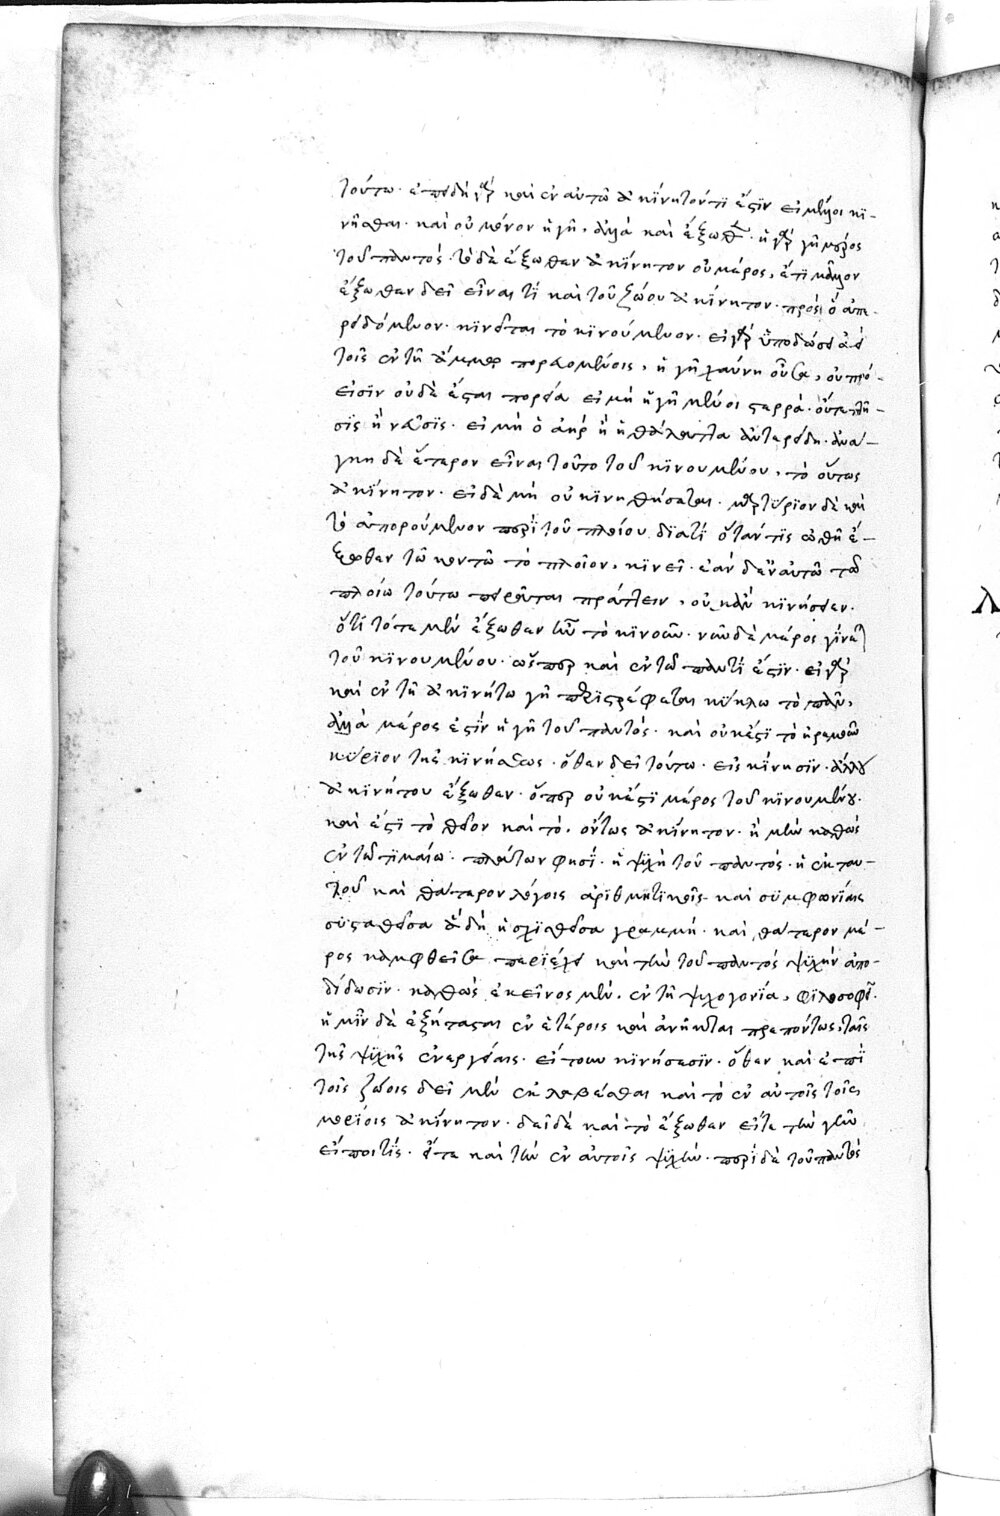 τούτω· ἐπειδὴ γὰρ καὶ ἐν αὐτῶ ἀκίνητόν τι ἐστὶν εἰ μέλλοι κι-
νῆσθαι· καὶ οὐ μόνον ἡ γῆ, ἀλλὰ καὶ ἔξωθεν· ἡ γὰρ γῆ μέρος
τοῦ παντός· τὸ δὲ ἔξωθεν ἀκίνητον οὐ μέρος, ἔτι μᾶλλον
ἔξωθεν δεῖ εἶναί τι καὶ τοῦ ζώου ἀκίνητον· πρὸς ὃ ἀπε-
ρειδόμενον· κινεῖται τὸ κινούμενον· εἰ γὰρ ὑποδώσει ἀεὶ
τοῖς ἐν τῆ ἄμμω πορευομένοις, ἡ γῆ χαύνη οὖσα, οὐ πρό-
εισιν οὐδὲ ἔσται πορεία εἰ μὴ ἡ γῆ μένοι στερρά· οὔτε πτῆ-
σις ἢ νεῦσις· εἰ μὴ ὁ ἀὴρ ἢ ἡ θάλαττα ἀντερείδη· ἀνά-
γκη δὲ ἕτερον εἶναι τοῦτο τοῦ κινουμένου, τὸ οὕτως
ἀκίνητον· εἰ δὲ μὴ οὐ κινηθήσεται· μαρτύριον δὲ καὶ
τὸ ἀπορούμενον περὶ τοῦ πλοίου διατί ὅταν τις ὠθῆ ἔ-
ξωθεν τῶ κοντῶ τὸ πλοῖον, κινεῖ· ἐὰν δ' ἐν αὐτῶ τῶ
πλοίω τοῦτο πειρᾶται πράττειν, οὐκ ἂν κινήσειεν·
ὅτι τότε μὲν ἔξωθεν ἦν τὸ κινοῦν· νῦν δὲ μέρος γίνεται
τοῦ κινουμένου· ὥσπερ καὶ ἐν τῶ παντί ἐστιν· εἰ γὰρ
καὶ ἐν τῆ ἀκινήτω γῆ περιστρέφεται κύκλω τὸ πᾶν,
ἀλλὰ μέρος ἐστὶν ἡ γῆ τοῦ παντός· καὶ οὐκ ἔστι τὸ ἠρεμοῦν
κύριον τῆς κινήσεως· ὅθεν δεῖ τούτω· εἰς κίνησιν· ἄλλου
ἀκινήτου ἔξωθεν· ὅπερ οὐκ ἔστι μέρος τοῦ κινουμένου·
καὶ ἔστι τὸ θεῖον καὶ τὸ· ὄντως ἀκίνητον· ἢ μὲν καθὼς
ἐν τῶ τιμαίω· πλάτων φησί· ἡ ψυχὴ τοῦ παντός· ἡ ἐκ ταυ-
τοῦ καὶ θάτερον λόγοις ἀριθμητικοῖς καὶ συμφωνίαις
συσταθεῖσα ἃ δὴ ἡ σχισθεῖσα γραμμή· καὶ θάτερον μέ-
ρος καμφθεῖσα περιέχει καὶ τὴν τοῦ παντὸς ψυχὴν ἀπο-
δίδωσιν· καθὼς ἐκεῖνος μὲν, ἐν τῆ ψυχογονία, φιλοσοφεῖ·
ἡμῖν δὲ ἐξήτασται ἐν ἑτέροις καὶ ἀνῆκται πρεπόντως, ταῖς
τῆς ψυχῆς ἐνεργείαις· εἴτουν κινήσεσιν· ὅθεν καὶ ἐπὶ
τοῖς ζώοις δεῖ μὲν ἐκλαβέσθαι καὶ τὸ ἐν αὐτοῖς τοῖς
μορίοις ἀκίνητον· δεῖ δὲ καὶ τὸ ἔξωθεν εἴτε τὴν γῆν
εἴποι τίς· εἴτε καὶ τὴν ἐν αὐτοῖς ψυχήν· περὶ δὲ τοῦ παντὸς